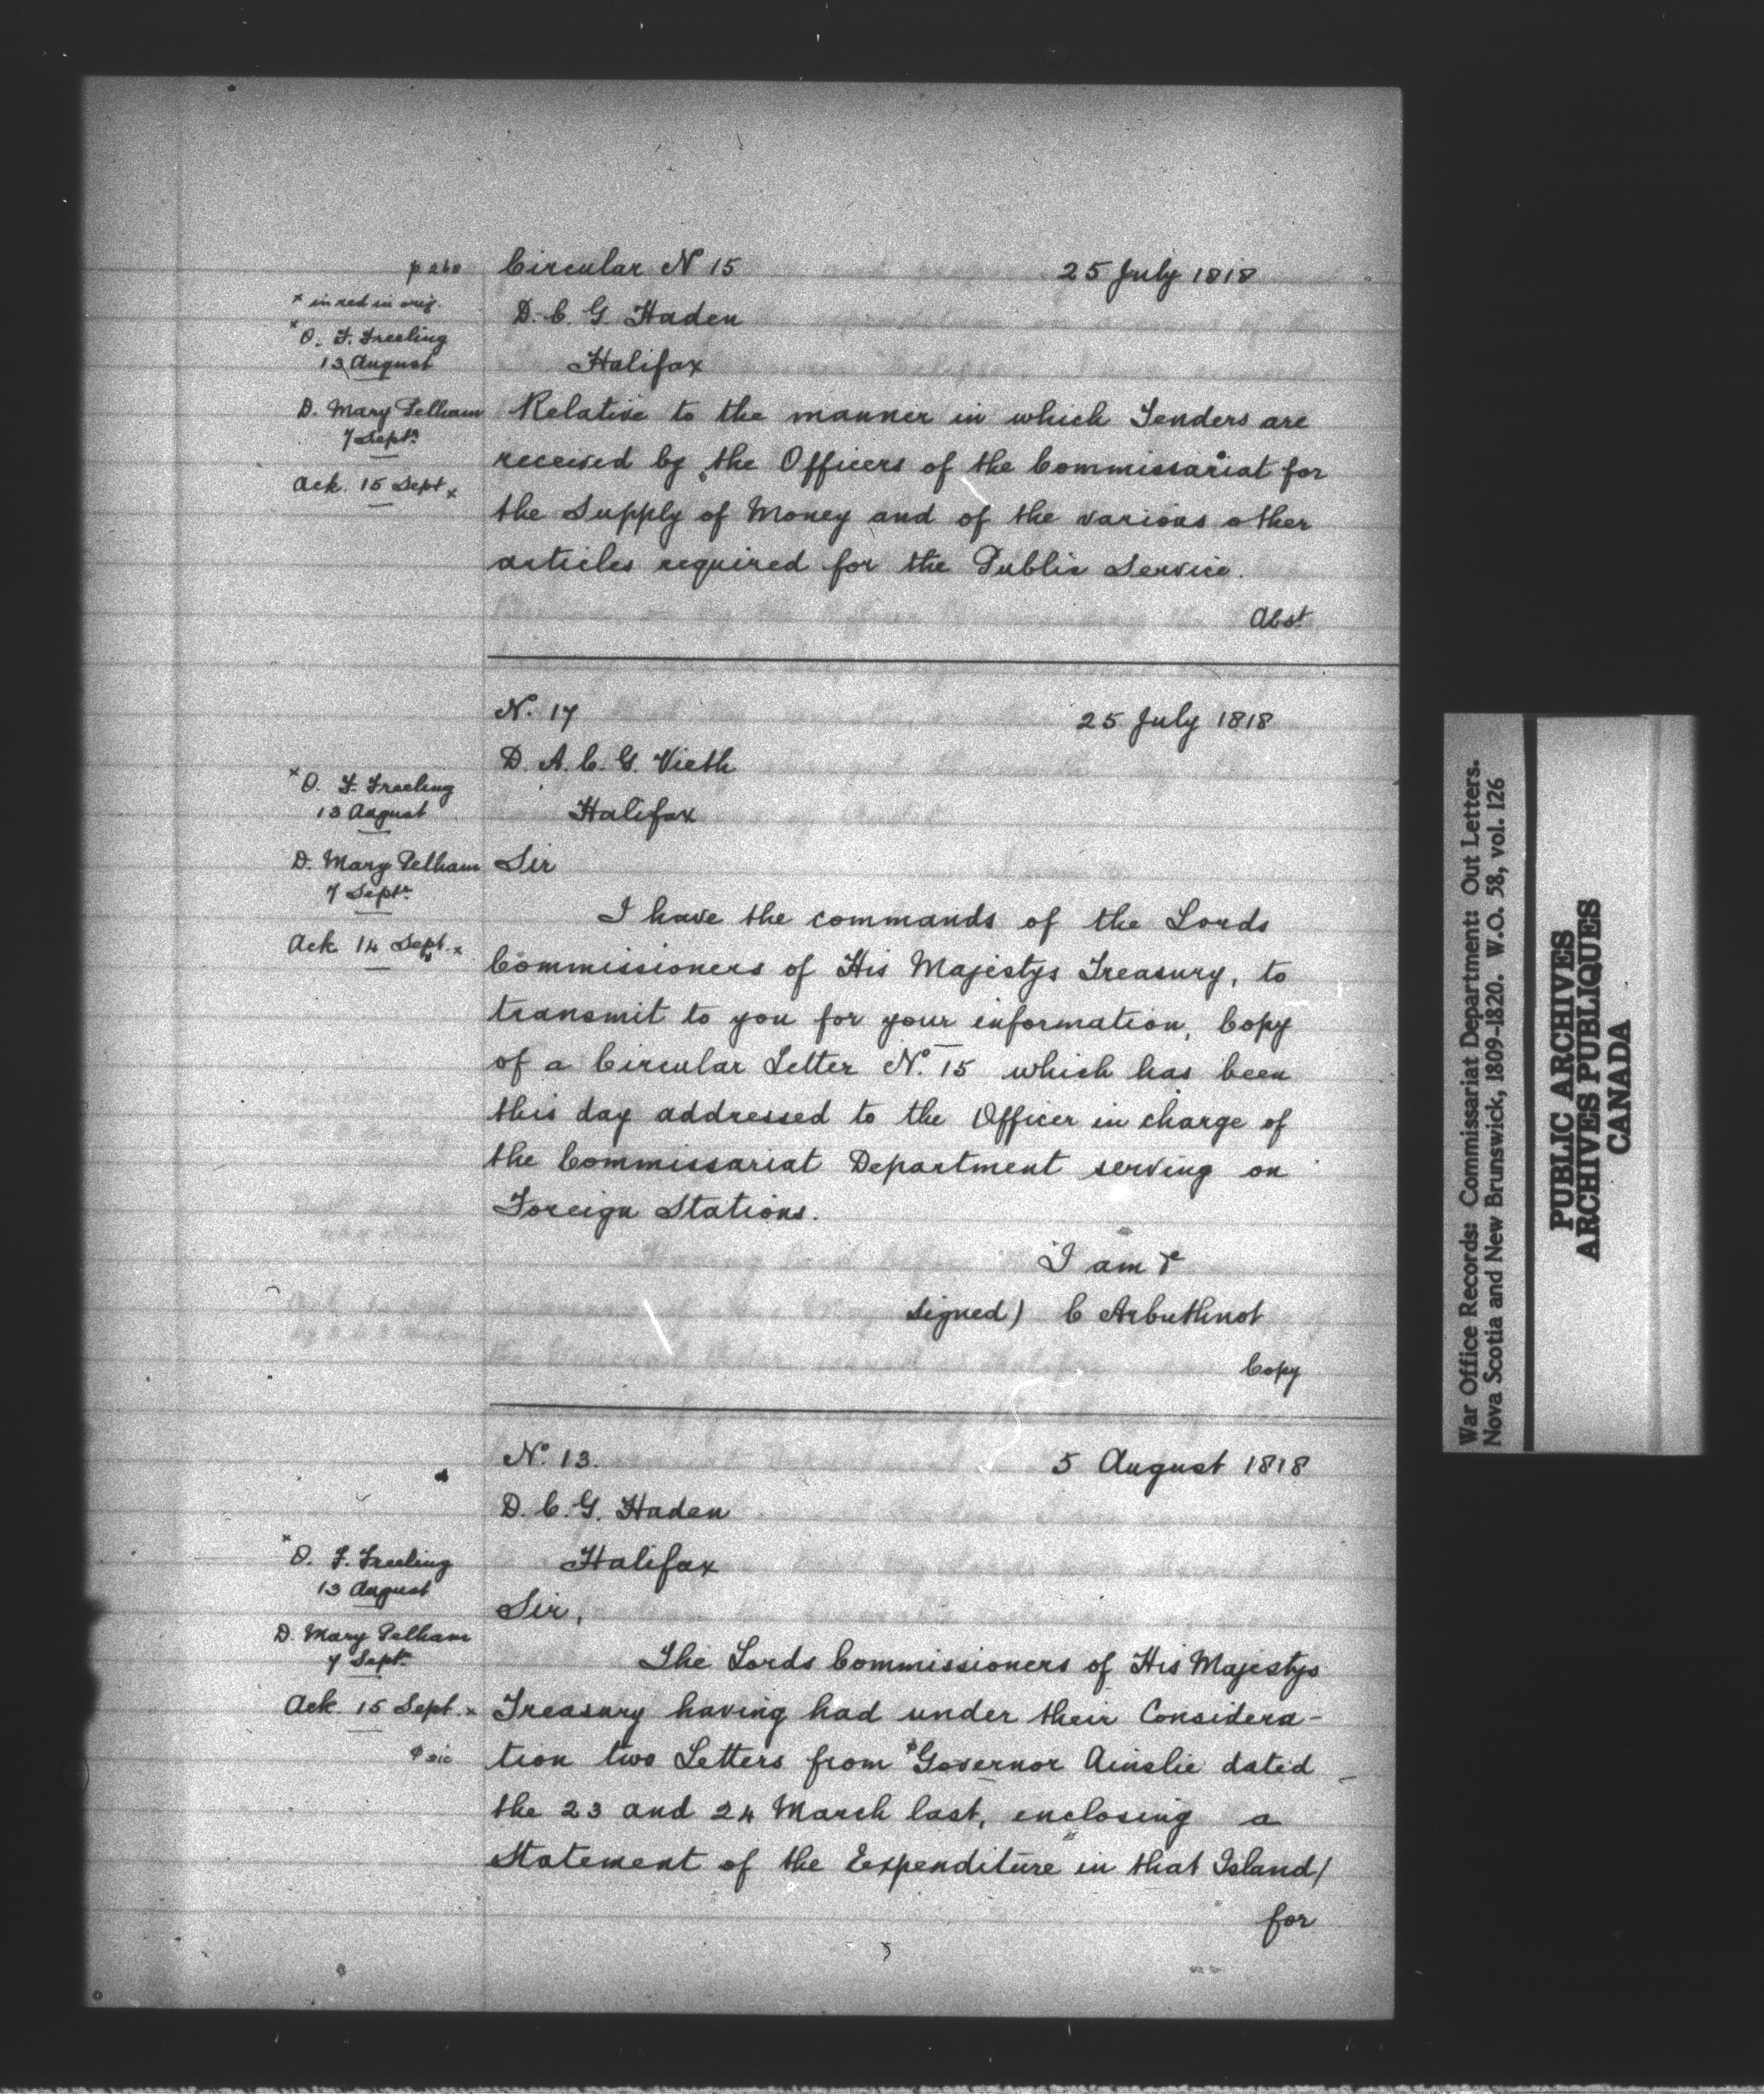 Circular No 15 25 July 1818
x in red in orig.
D. C. G. Haden
x O. F. Freeling
13 August
Halifax
D. Mary Pelham
7 Septr
Ack. 15 Sept x
Relative to the manner in which Tenders are
received by the Officers of the Commissariat for
the Supply of Money and of the various other
articles required for the Public Service.
Abst
No. 17 25 July 1818
D. A. C. G. Vieth
x O. F. Freeling
13 August
Halifax
D. Mary Pelham
7 Septr
Ack 14 Sept. x
Sir
I have the commands of the Lords
Commissioners of His Majestys Treasury, to
transmit to you for your information, Copy
of a Circular Letter No. 15 which has been
this day addressed to the Officer in charge of
the Commissariat Department serving on
Foreign Stations.
I am &c
signed) C Arbuthnot
Copy
No. 13. 5 August 1818
D. C. G. Haden
x O. F. Freeling
13 August
Halifax
D. Mary Pelham
7 Septr
Ack. 15 Sept. x
φ sic
Sir,
The Lords Commissioners of His Majestys
Treasury having had under their Considera-
tion two Letters from φ Governor Ainslie dated
the 23 and 24 March last, enclosing a
Statement of the Expenditure in that Island/
for
War Office Records: Commissariat Department: Out Letters.
Nova Scotia and New Brunswick, 1809-1820. W.O. 58, vol. 126
PUBLIC ARCHIVES
ARCHIVES PUBLIQUES
CANADA